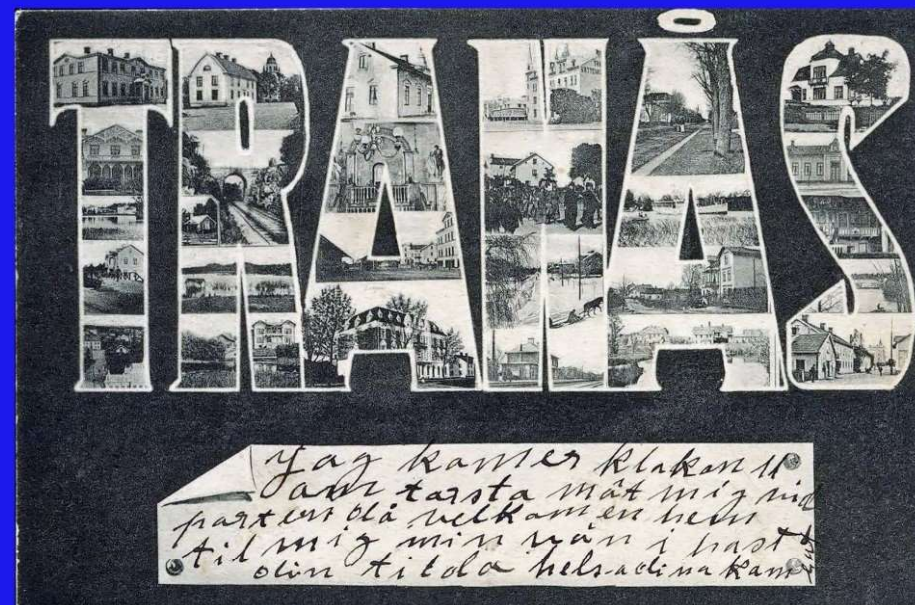 TRANÅS
Jag kamer klakan 11
am tarsta möt mig vid
parten då velkamen hem
til mig min vän i hast
din tilda helsa dina kam